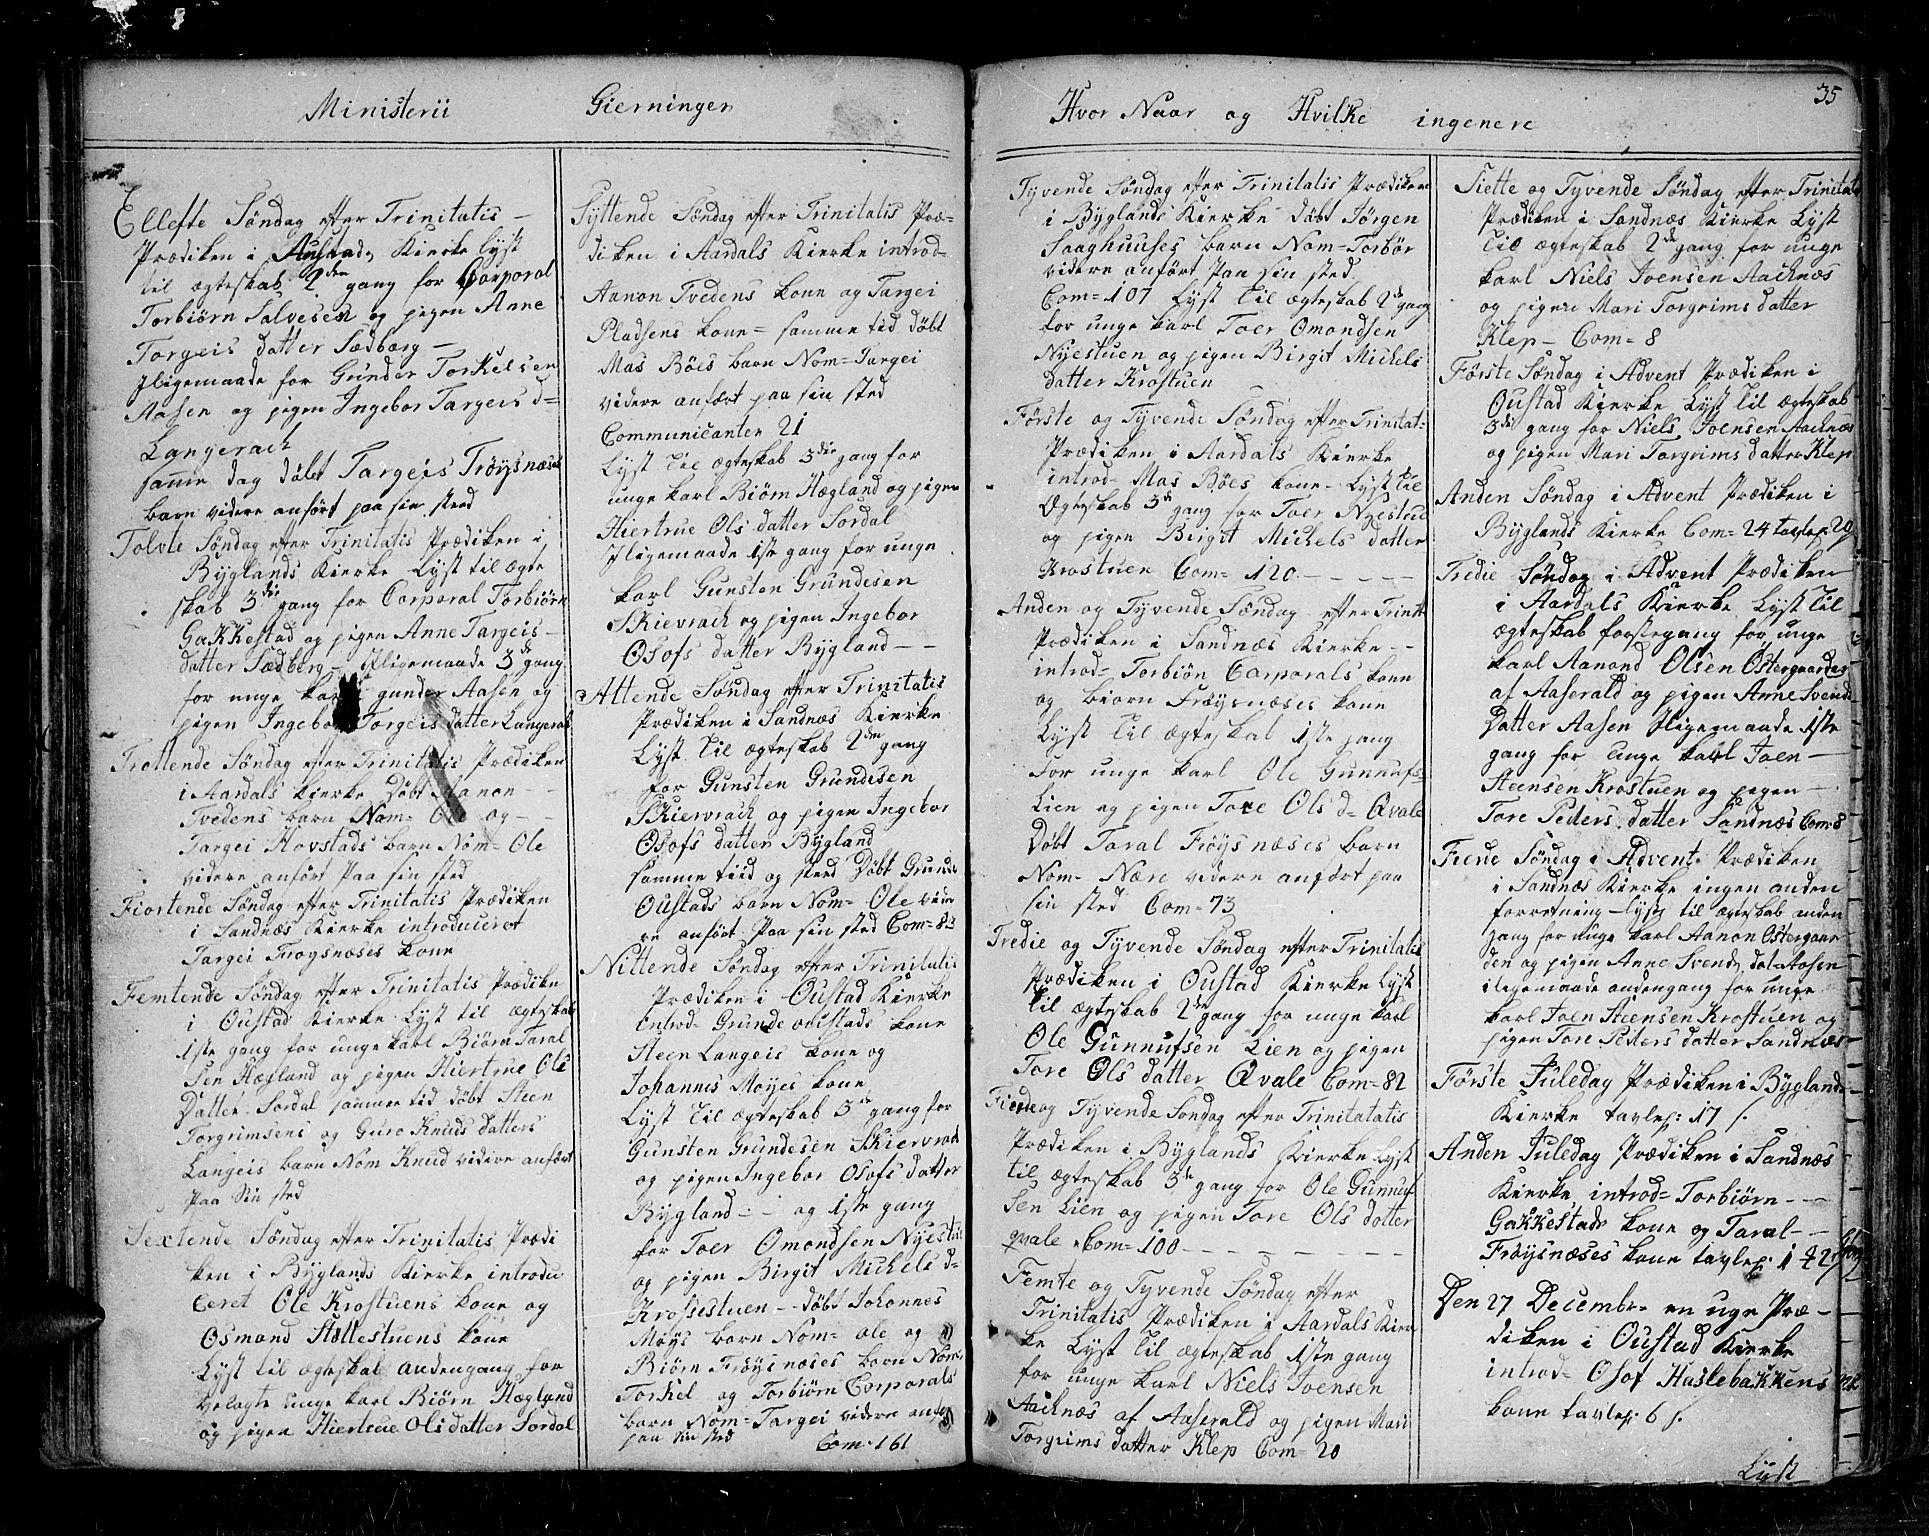 Ministerii Gierninger
Ellefte Søndag efter Trinitatis –
Prædiken i Kierke lyst
til ægteskab 2den gang for Corporal
Torbiørn Salvesen og pigen Anne
Torgeis datter Sædberg –
Iligemaade for Gunder Torkelsen
Aasen og pigen Ingebor Targeis d=
Langerach
samme dag døbt Targeis Frøysnæses
barn videre anført paa sin sted
Tolvte Søndag efter Trinitatis Prædiken i
Byglands Kierke Lyst til ægte
skab 3die gang for Corporal Torbiørn
Gakkestad og pigen Anne Targeis –
datter Sædberg – Iligemaade 3de gang
for unge karl gunder Aasen og
pigen Ingebor Torgeis datter Langerak
Trettende Søndag efter Trinitatis Prædiken
i Aardals Kierke Døbt Aanon – –
Tvedens barn Nom= Ole og – –
Targei Hovstads barn Nom= Ole
videre anført Paa sin sted
Fiortende Søndag efter Trinitatis Prædiken
i Sandnæs Kierke introduceret
Targei Frøysnæses kone
Femtende Søndag efter Trinitatis Prædiken
i Oustad Kierke Lyst til ægteskab
1ste gang for unge karl Biørn Taral
Sen Hægland og pigen Hiertrue Ols
Datter Sordal sammetid døbt Steen
Torgrimsens og Guro Knuds datters
Langeis barn Nom Knud videre anført
Paa Sin sted
Sextende Søndag efter Trinitatis Prædi
ken i Byglands Kierke introdu
ceret Ole Krostuens kone og
Osmond Stallestuens kone
Lyst til ægteskab andengang for
velagte unge karl Biørn Hægland
og pigen Hiertrue Ols datter Sordal
Syttende Søndag efter Trinitatis Præ=
diken i Aardals Kierke introd=
Aanon Tvedens kone og Targei
Pladsens kone = samme tid døbt
Mas Bøes barn Nom= Targei
videre anført paa sin sted
Communicanter 21
Lyst til ægteskab 3die gang for
unge karl Biørn Hægland og pigen
Hiertrue Ols datter Sordal
Iligemaade 1ste gang for unge
karl Gunsten Grundesen
Skievrach og pigen Ingebor
Osofs datter Bygland – –
Attende Søndag efter Trinitatis
Prædiken i Sandnæs Kierke
Lyst til ægteskab 2den gang
for Gunsten Grundesen
Skievrach og pigen Ingebor
Osofs datter Bygland
samme tiid og sted Døbt Grunde
Oustads barn Nom= Ole vide
re anført Paa sin sted Com=
Nittende Søndag efter Trinitatis
Prædiken i Oustad Kierke
introd= Grunde oustads kone
Steen Langeis kone og
Johannes Moyes kone
Lyst til ægteskab 3de gang for
Gunsten Grundesen Skievrach
og pigen Ingebor Osofs datter
Bygland – – og 1ste gang
for Toer Omondsen Nyestue
og pigen Birgit Michels d=
Krossestuen – døbt Johannes
Moys barn Nom= ole og
Biørn Frøysnæses barn Nom=
Torkel og Torbiørn Corporals
barn Nom= Targei videre anført
paa sin sted Com= 161
Hvor Naar og Hvilke ingenere
35
Tyvende Søndag efter Trinitatis Prædiken
i Byglands Kierke døbt Jørgen
Saaghuuses barn Nom= Torbør
videre anført Paa sin sted
Com= 107 Lyst til ægteskab 2de gang
for unge karl Toer Omondsen
Nyestuen og pigen Birgit Michels
datter Krostuen
Første og Tyvende Søndag efter Trinitat=
Prædiken i Aardals Kierke
introd= Mas Bøes kone – Lyst til
Ægteskab 3de gang for Toer Nyestue
og pigen Birgit Michels datter
Krostuen Com= 120 – – – – –
Anden og Tyvende Søndag efter Trinit
Prædiken i Sandnæs Kierke – –
introd= Torbiørn Corporals kone
og biørn Frøysnæses kone
Lyst til ægteskab 1ste gang
For unge karl Ole Gunnufs–
Lien og pigen Tore Ols d= Qvale
Døbt Taral Frøysnæses barn
Nom= Nære videre anført paa
sin sted Com= 73
Tredie og Tyvende Søndag efter Trinitatis
Prædiken i Oustad Kierke Lyst
til ægteskab 2den gang for unge karl
Ole Gunnufsen Lien og pigen
Tore Ols datter Qvale Com= 82
Fierde og Tyvende Søndag efter Trinitatatis
Prædiken i Byglands Kierke Lyst
til ægteskab 3de gang for Ole Gunnuf
Sen Lien og pigen Tore Ols datter
qvale Com= 100 – – – – – – –
Femte og Tyvende Søndag efter
Trinitatis Prædiken i Aardals Kier
ke Lyst til ægteskab 1ste gang
for unge karl Niels Joensen
Aacknæs af Aaserald og pigen Mari
Torgrims datter Klep Com= 20
Siette og Tyvende Søndag efter Trinitatis
Prædiken i Sandnæs Kierke Lyst
til ægteskab 2de gang for unge
karl Niels Joensen Aacknæs
og pigen Mari Torgrims datter
Klep – Com= 8
Første Søndag i Advent Prædiken i
Oustad Kierke Lyst til ægteskab
3die gang for Niels Joensen Aacknæs
og pigen Mari Torgrims datter Klep
Anden Søndag i Advent Prædiken i
Byglands Kierke Com= 24 tavlep:
Tredie Søndag i Advent Prædiken
i Aardals Kierke Lyst til
ægteskab første gang for unge
karl Aanond Olsen Østergaarden
af Aaserald og pigen Anne Svends
Datter Aasen Iligemaade 1ste
gang for unge karl Joen –
Steensen Krostuen og pigen –
Tore Peders datter Sandnæs Com= 8
Fierde Søndag i Advent Prædiken
i Sandnæs Kierke ingen anden
forretning – lyst til ægteskab anden
gang for unge karl Aanon Østergaar
den og pigen Anne Svends dat= Aasen
iligemaade andengang for unge
karl Joen Steensen Krostuen og
pigen Tore Peders datter Sandnæs
Første Juledag Prædiken i Byglands
Kierke tavlep: 17 s.
Anden Juledag Prædiken i Sandnæs
Kierke introd= Torbiørn – – –
Gakkestads kone og Taral – –
Frøysnæses kone tavlep:
Den 27 Decembr= en uge Præ –
diken i Oustad Kierke
introd= Osof Haslebakkens
kone tavlep: 6 s.
Lyst